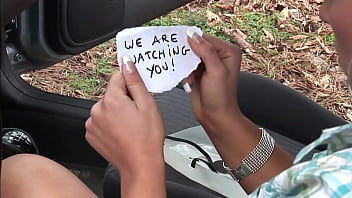 WE ARE
WATCHING
YOU!